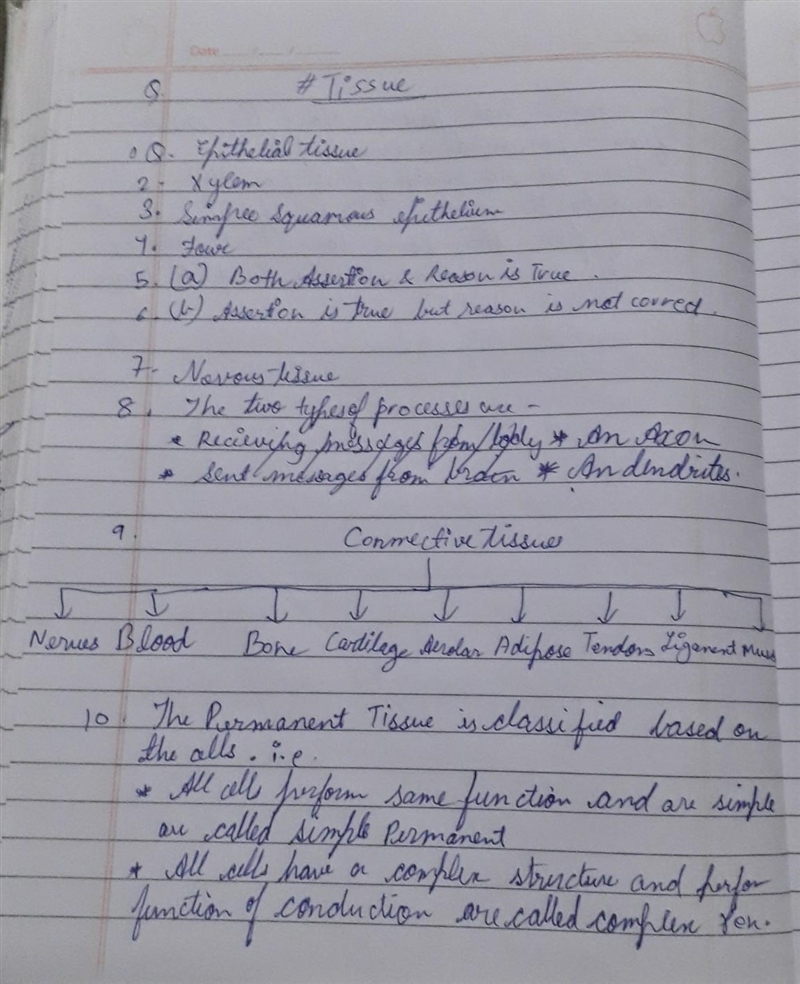 Date
Q # Tissue
1 Q. Epithelial tissue
2. Xylem
3. Simple Squamous epithelium
4. Four
5. (a) Both Assertion & Reason is True.
6. (b) Assertion is true but reason is not correct.
7. Nervous tissue
8. The two types of processes are -
* Recieving messages from body * An Axon
* Sent messages from brain * An dendrites.
9. Connective tissues
Nerves Blood Bone Cartilage Aerolar Adipose Tendons Ligament Mus
10. The Permanent Tissue is classified based on
the cells. i.e.
* All cells perform same function and are simple
are called simple Permanent
* All cells have a complex structure and perfor
function of conduction are called complex Per.